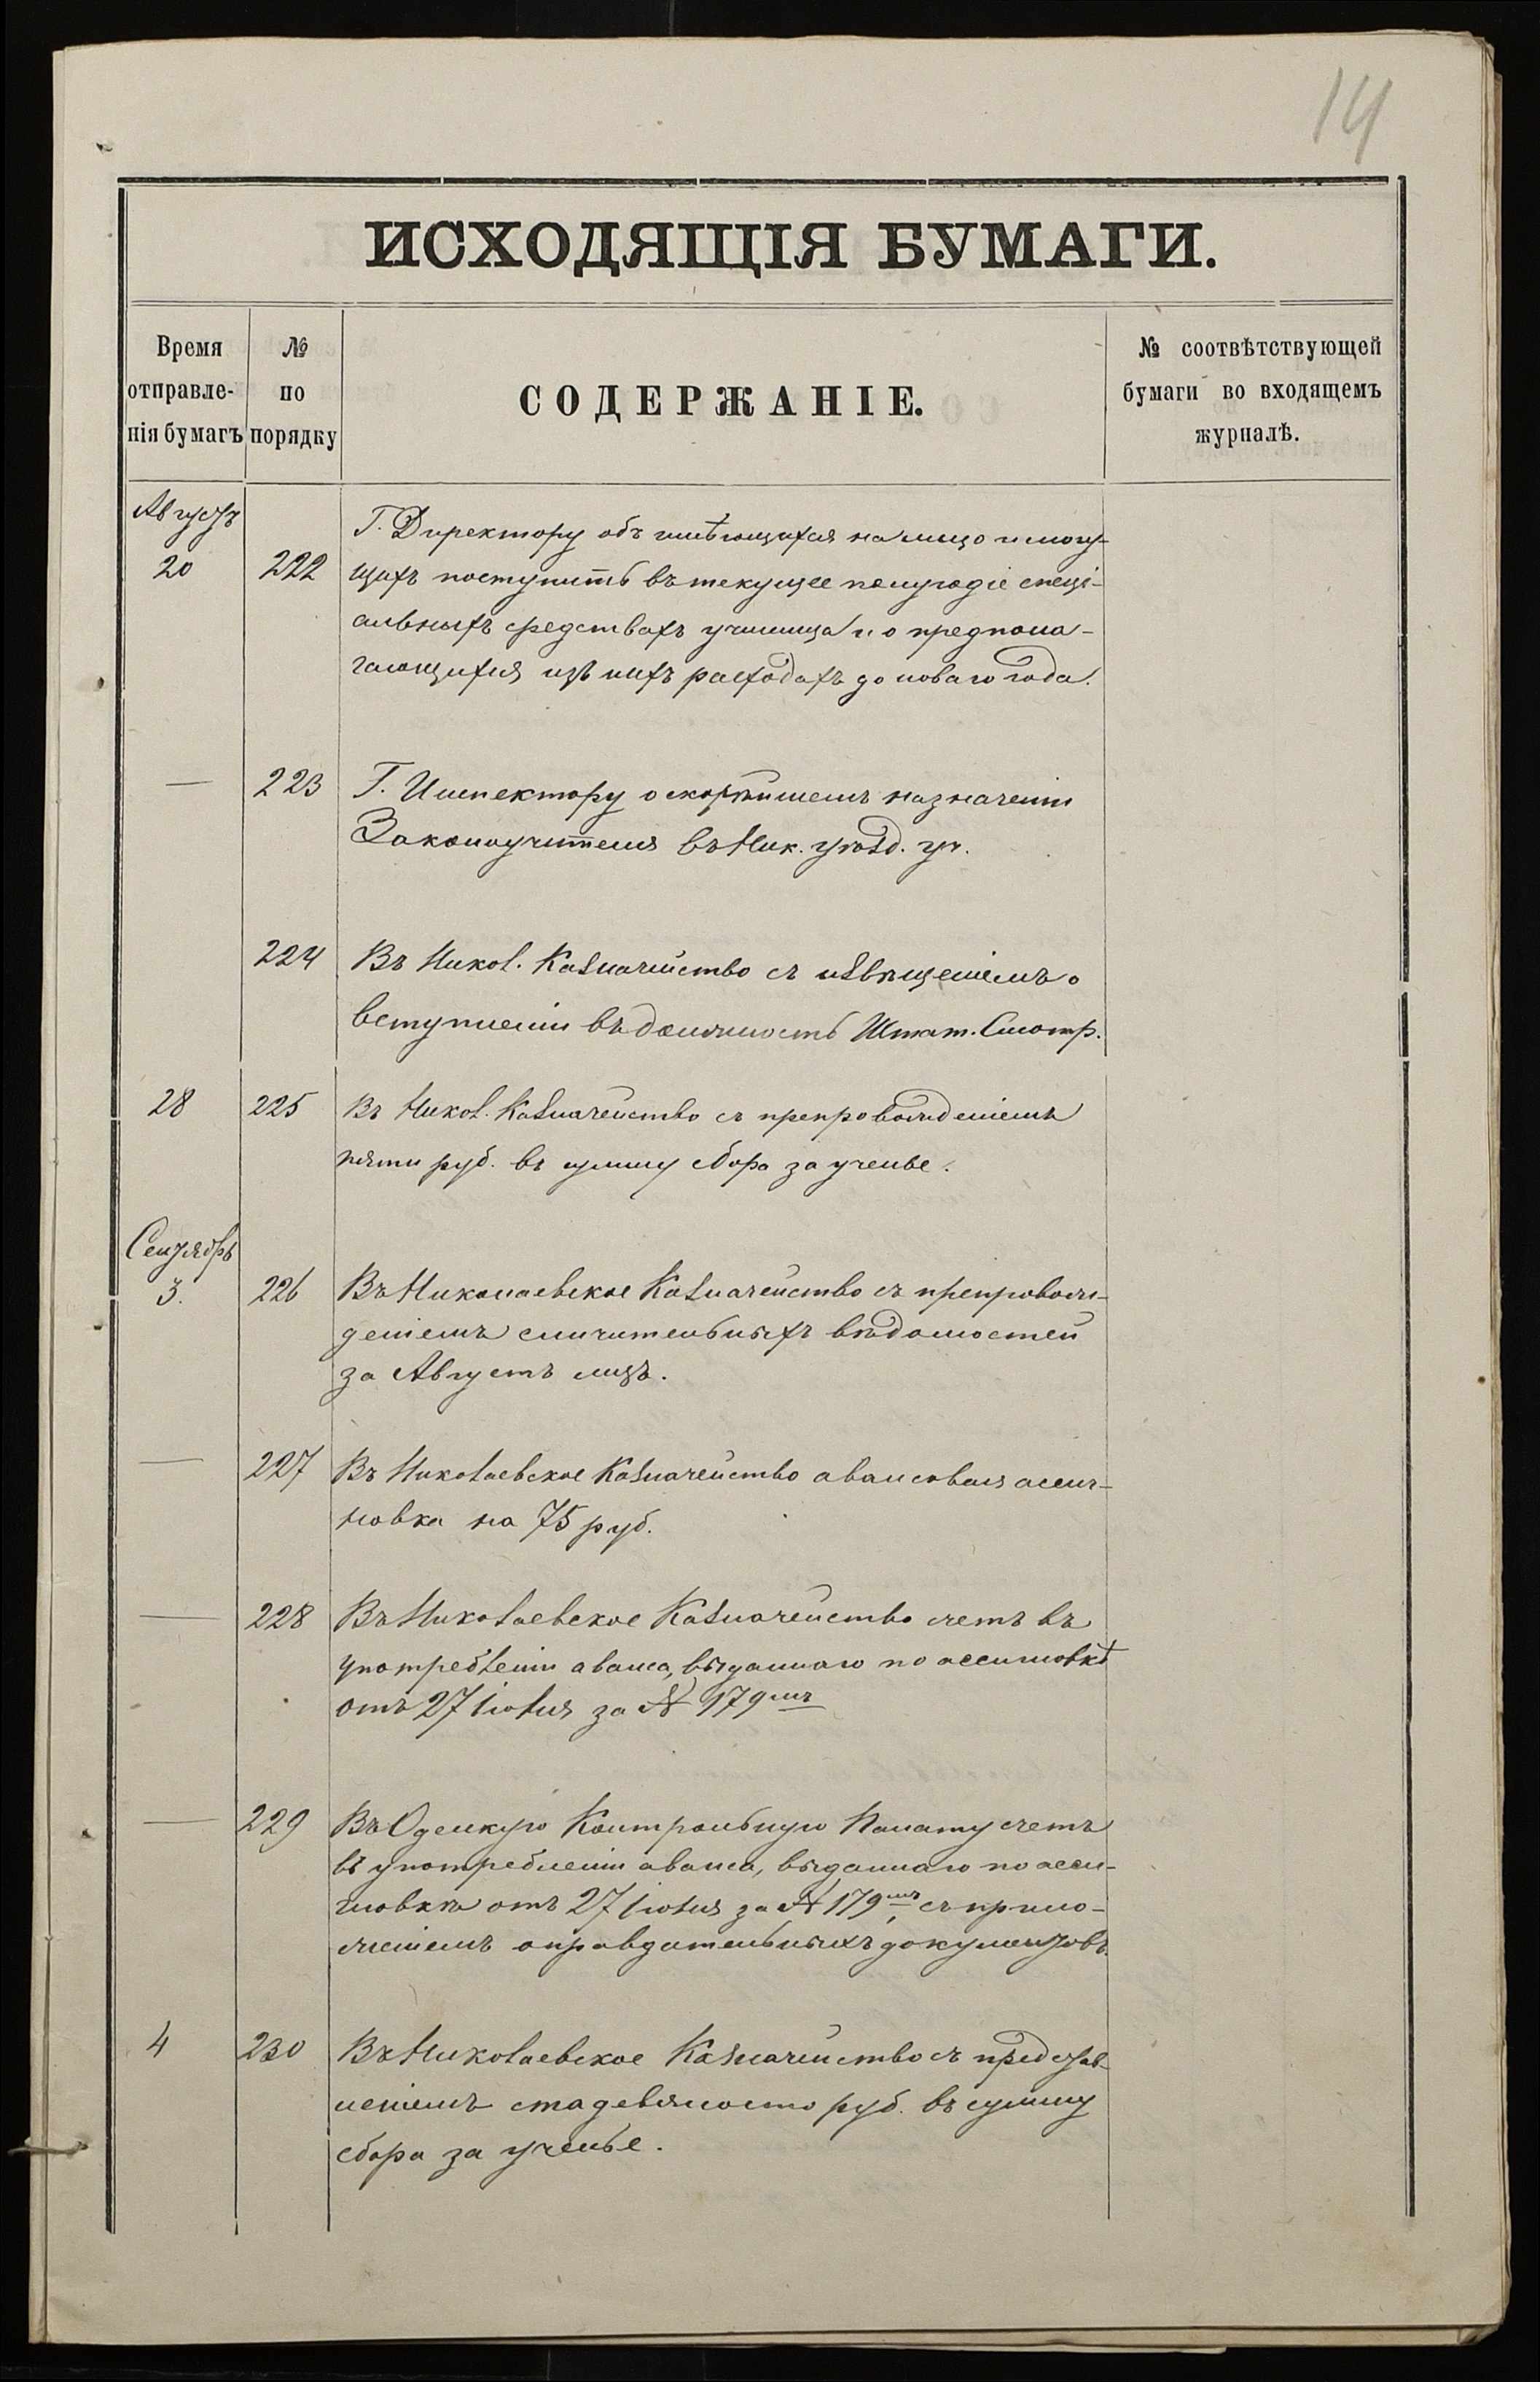 14
ИСХОДЯЩІЯ БУМАГИ.
Время отправле-нія бумагъ
№ по порядку
СОДЕРЖАНІЕ.
№ соотвѣтствующей бумаги во входящемъ журналѣ.
Августъ
20 222 Г. Директору объ имѣющихся на лицо и могу-
щихъ поступить въ текущее полугодіе спеці-
альныхъ средствахъ училища и о предпола-
гающихся изъ нихъ расходахъ до новаго года.
— 223 Г. Инспектору о скорѣйшемъ назначеніи
Законоучителя въ Ник. уѣзд. уч.
224 Въ Никол. Казначейство съ извѣщеніемъ о
вступленіи въ должность Штат. Смотр.
28 225 Въ Никол. Казначейство съ препровожденіемъ
пяти руб. въ сумму сбора за ученье.
Сентябрь
3. 226 Въ Николаевское Казначейство съ препровож-
деніемъ сличительныхъ вѣдомостей
за Августъ мцъ.
— 227 Въ Николаевское Казначейство авансовая ассиг-
новка на 75 руб.
— 228 Въ Николаевское Казначейство счетъ въ
употребленіи аванса, выданнаго по ассигновкѣ
отъ 27 Іюля за № 179мъ
— 229 Въ Одесскую Контрольную Палату счетъ
въ употребленіи аванса, выданнаго по асси-
гновкѣ отъ 27 Іюля за № 179мъ, съ прило-
женіемъ оправдательныхъ документовъ.
4 230 Въ Николаевское Казначейство съ представ-
леніемъ ста девяносто руб. въ сумму
сбора за ученье.